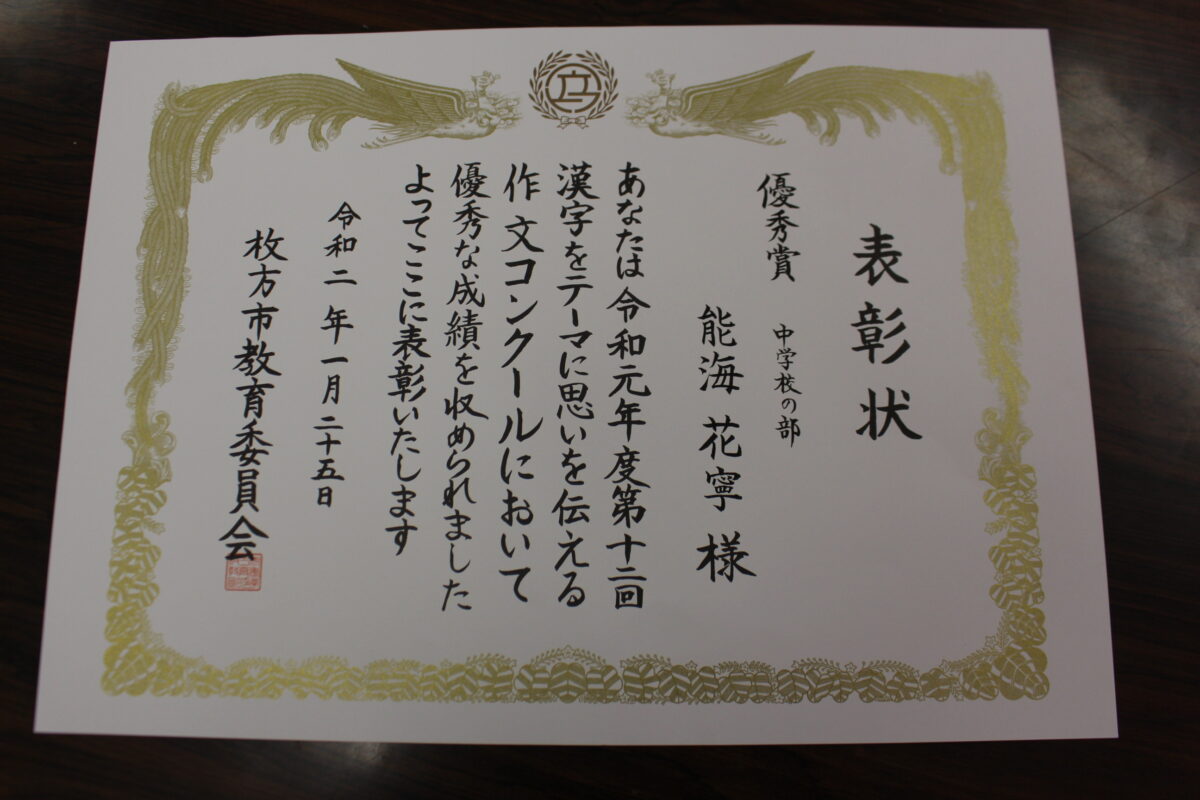 表彰状
優秀賞 中学校の部
能海花寧様
あなたは令和元年度第十二回
漢字をテーマに思いを伝える
作文コンクールにおいて
優秀な成績を収められました
よってここに表彰いたします
令和二年一月二十五日
枚方市教育委員会